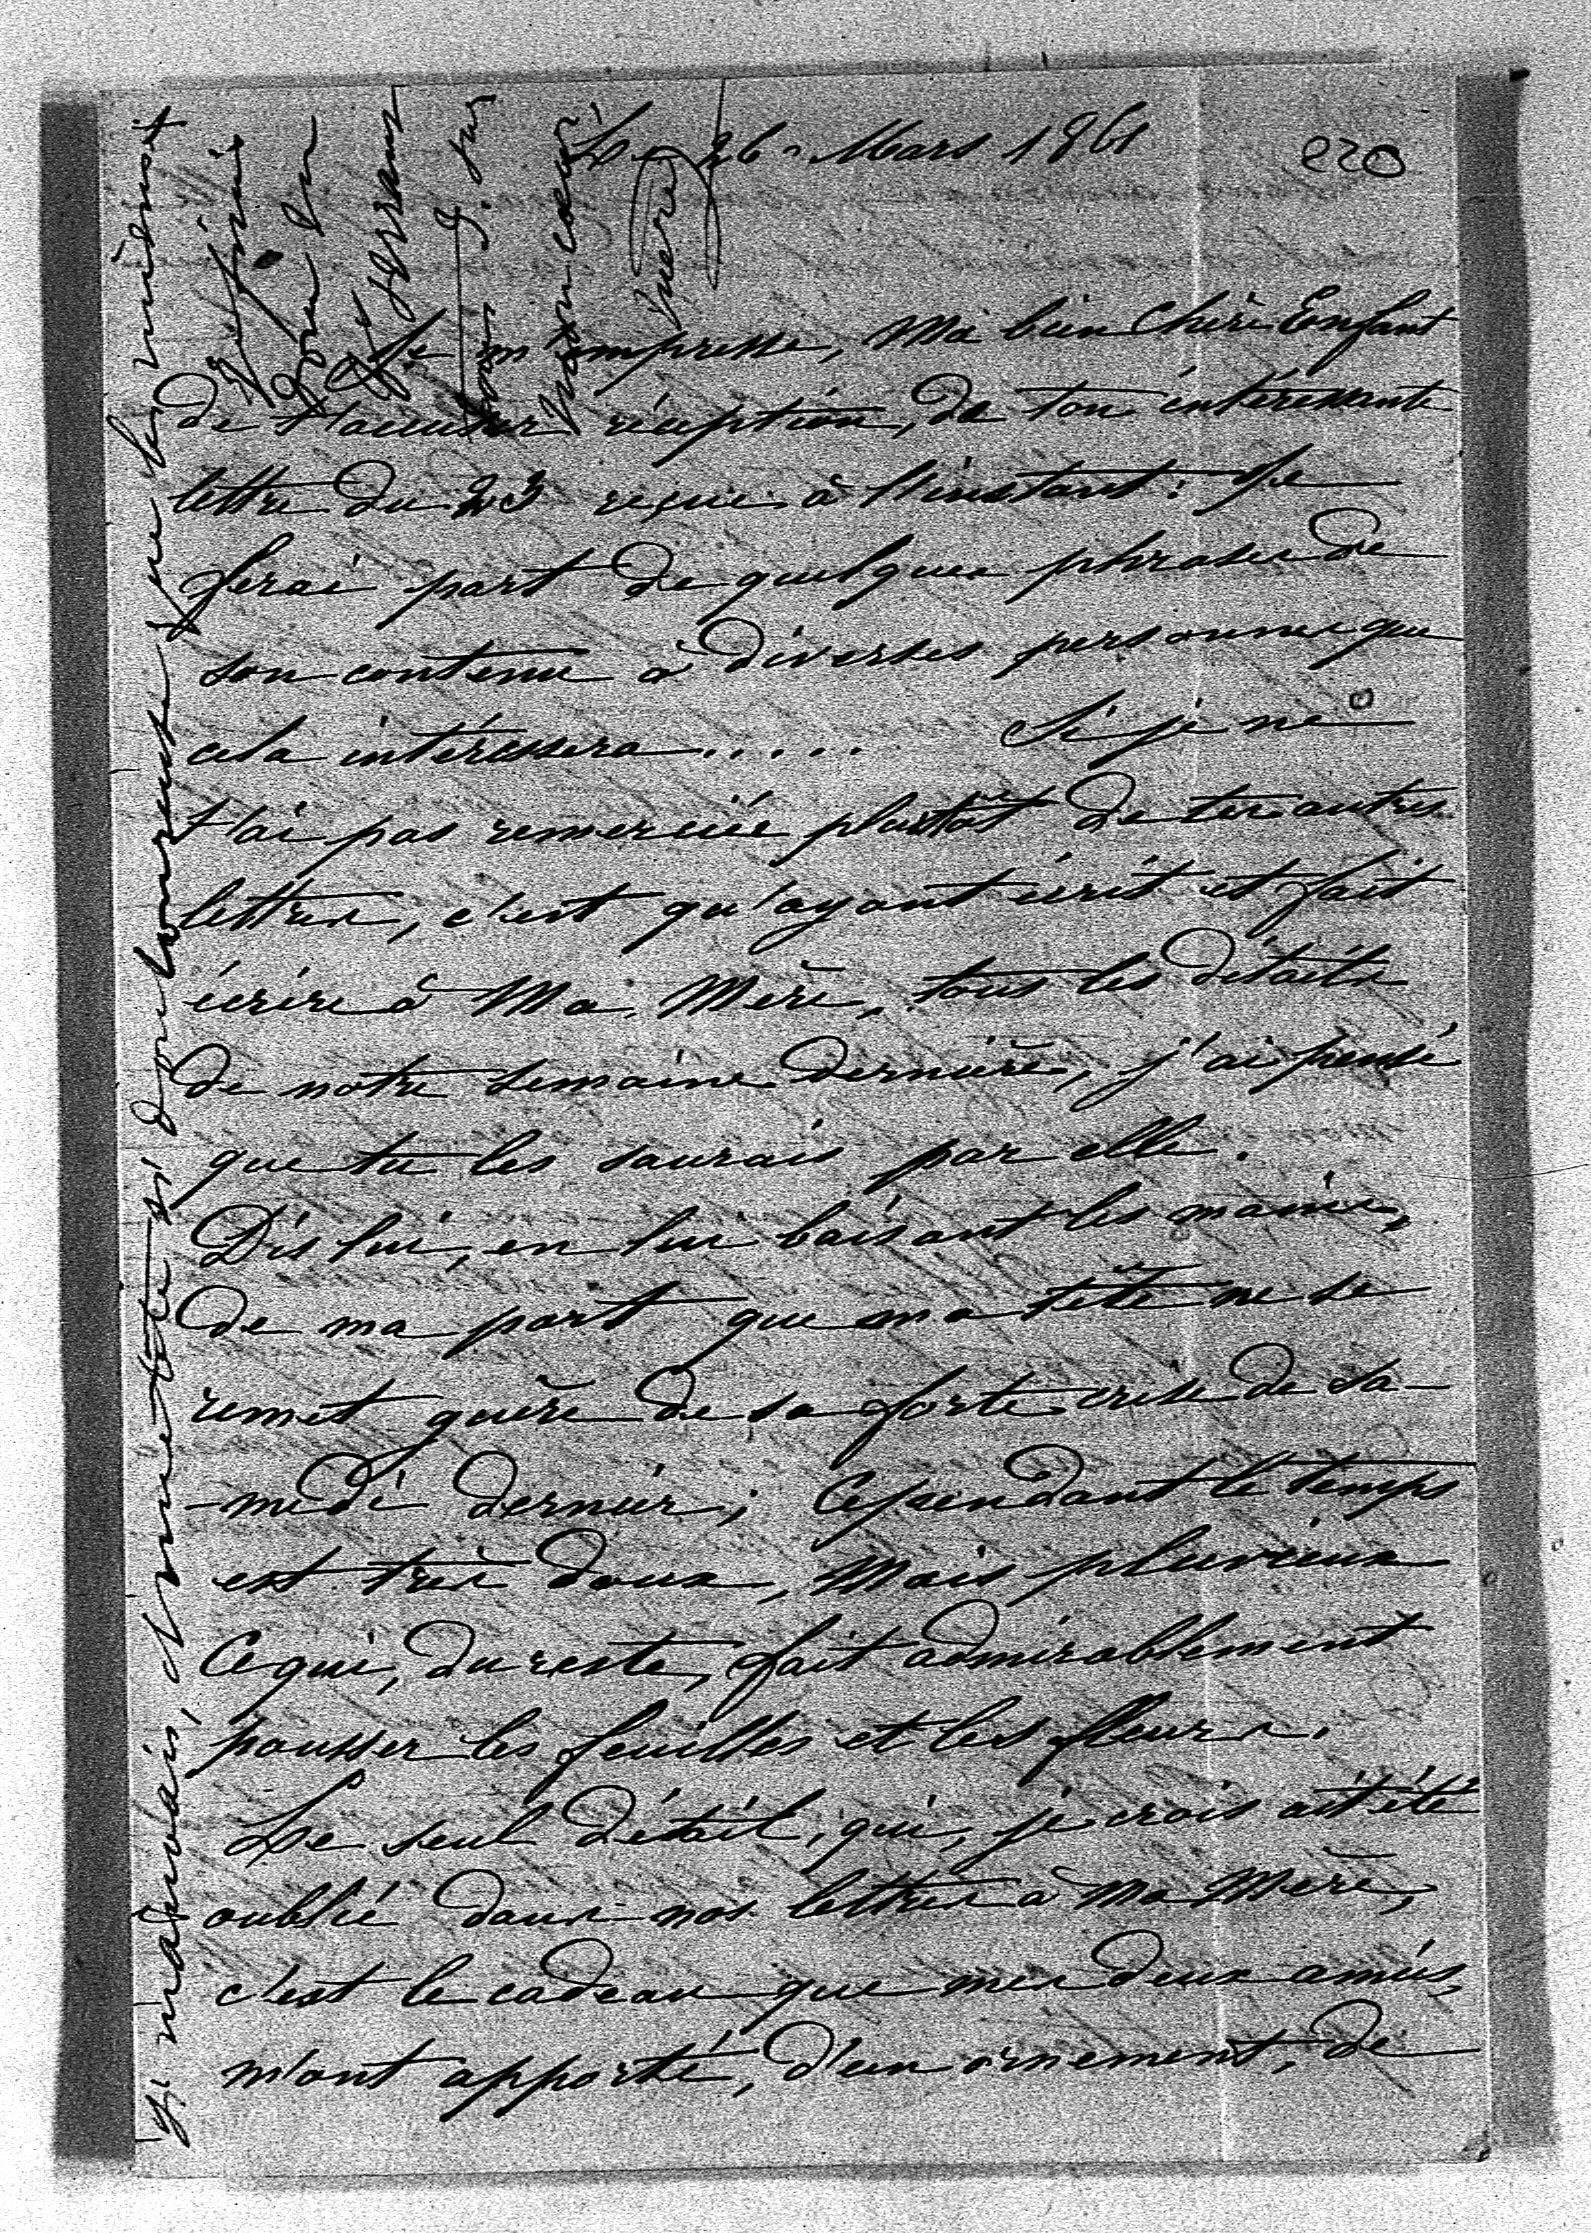 Le 26 Mars 1861
220
Je m'empresse, Ma bien Chère Enfant
de t'accuser réception, de ton intéressante
lettre du 23 reçue à l'instant : Je
ferai part de quelques phrases de
son contenu à diverses personnes que
cela intéressera.....  Si je ne
t'ai pas remerciée plustôt de tes autres
lettres, c'est qu'ayant écrit et fait
écrire à Ma Mère, tous les détails
de notre semaine dernière, j'ai pensé
que tu les saurais par elle.
Dis lui, en lui baisant les mains,
de ma part que ma tête ne se
remet guère de sa forte crise de Sa-
-medi dernier ; Cependant le temps
est très doux, Mais pluvieux
Ce qui, du reste, fait admirablement
pousser les feuilles et les fleurs.
Le seul détail, qui, je crois ait été
oublié dans nos lettres à Ma Mère,
c'est le cadeau que mes deux amies,
m'ont apporté, d'un ornement, de
ma tête si douloureuse que les
mon coeur
mère